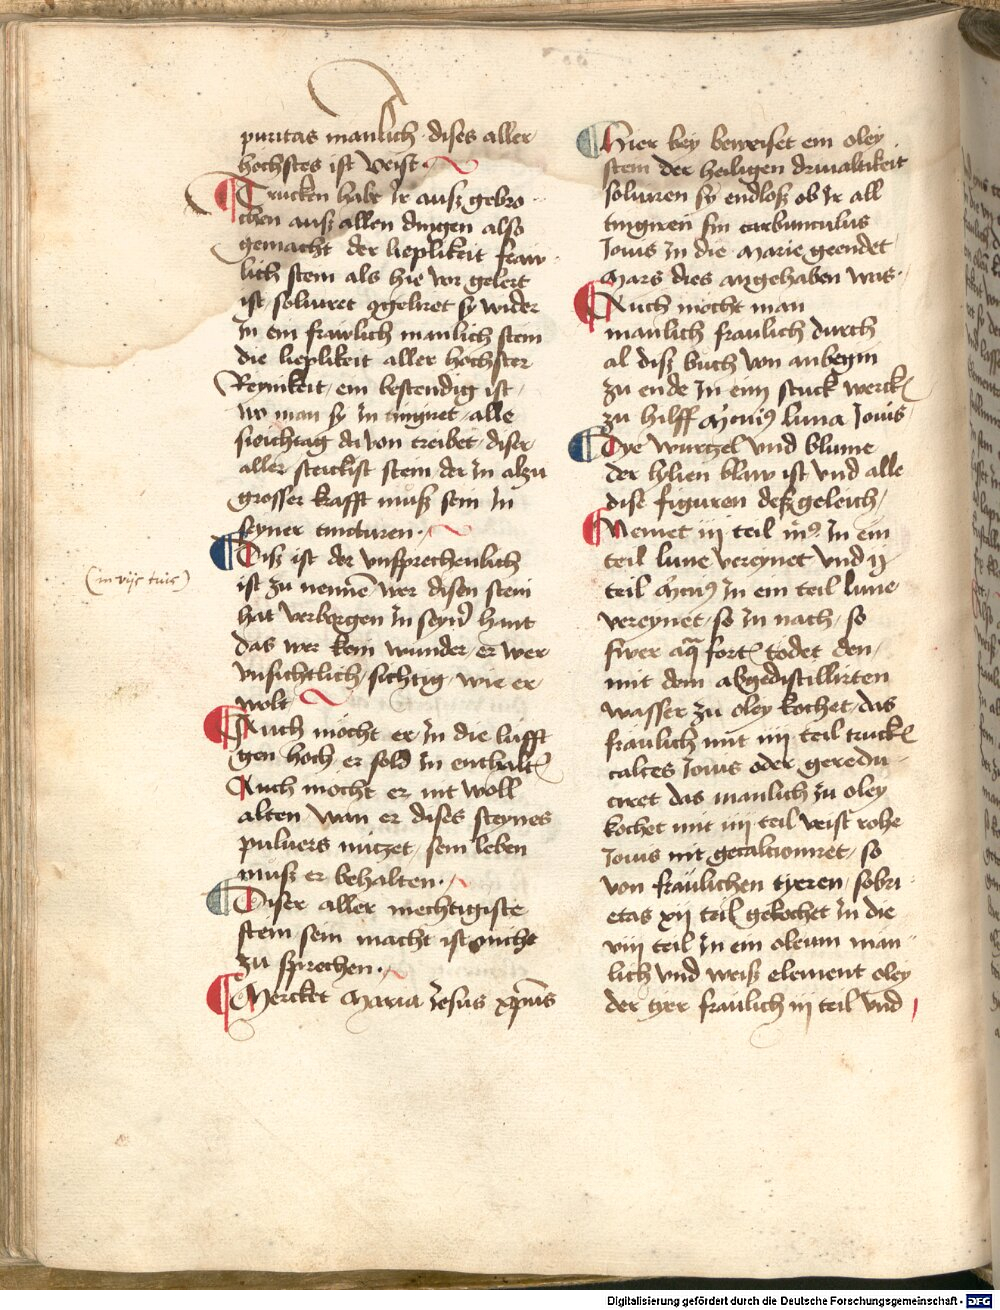 puritas manlich dises aller
hochstes ist veist
Trucken habt ir ausz gebro
chen ausz allen dingen also
gemacht der lieplikeit fraw
lich stein als hie vor gelert
ist soluiret ꝯgeliret sy wider
in ein frawlich manlich stein
die lieplikeit aller hochster
Reynikeit, ein bestendig ist,
wo man sy in tingnet, alle
siechtag da von treibet, diser
aller sterckist stein der in alzu
grosser krafft můsz sein in
seyner tincturen.
Disz ist der vnsprechenlich
ist zu nennē wer disen stein
hat verborgen in seyn̄ hant
das wer kein wunder, er wer
vnsichtlich, sichtig, wie er
wolt
(in vijs tuis)
Auch mocht er in die lufft
gen hoch er sold in enthaltē
Auch mocht er nit woll
alten wan er dises steynes
puluers nutzet, sein leben
můsz er behalten.
Diser aller mechtigiste
stein sein macht ist nicht
zu sprechen.
Mercket Maria Jesus xp̄nus
Hier bey beweiset ein oley
stein der heiligen driualtikeit
soluiren sy endlosz ob ir all
tingnen sin carbunculus
Jouis in die Marie geendet
Mars dies angehaben was.
Auch mocht man
manlich fraulich durch
al disz buch von anbegin
zu ende in ein stuck werckē
zu hilff Mcuriꝰ luna Jouis
Dye wurtzel vnd blume
der lylien blaw ist vnd alle
dise figuren desz geleich,
Nemet iij teil mꝰ in ein
teil lune vereynet vnd ij
teil Mcuriꝰ in ein teil lune
vereynet, so in nach, so
fiver aq̄ fort todet den,
mit dem abgedistillirten
wasser zu oley kochet, das
fraulich mit iiij teil truckē
caltes Jouis oder geredu
ciret das manlich zu oley
kochet mit iiij teil veist rohe
Jouis nit gecalcioniret, so
von fraulichen tyeren, sobri
etas xij teil gekochet in die
viij teil in ein oleum man
lich vnd weisz element oley
der tyer fraulich iij teil vnd
Digitalisierung gefördert durch die Deutsche Forschungsgemeinschaft - DFG